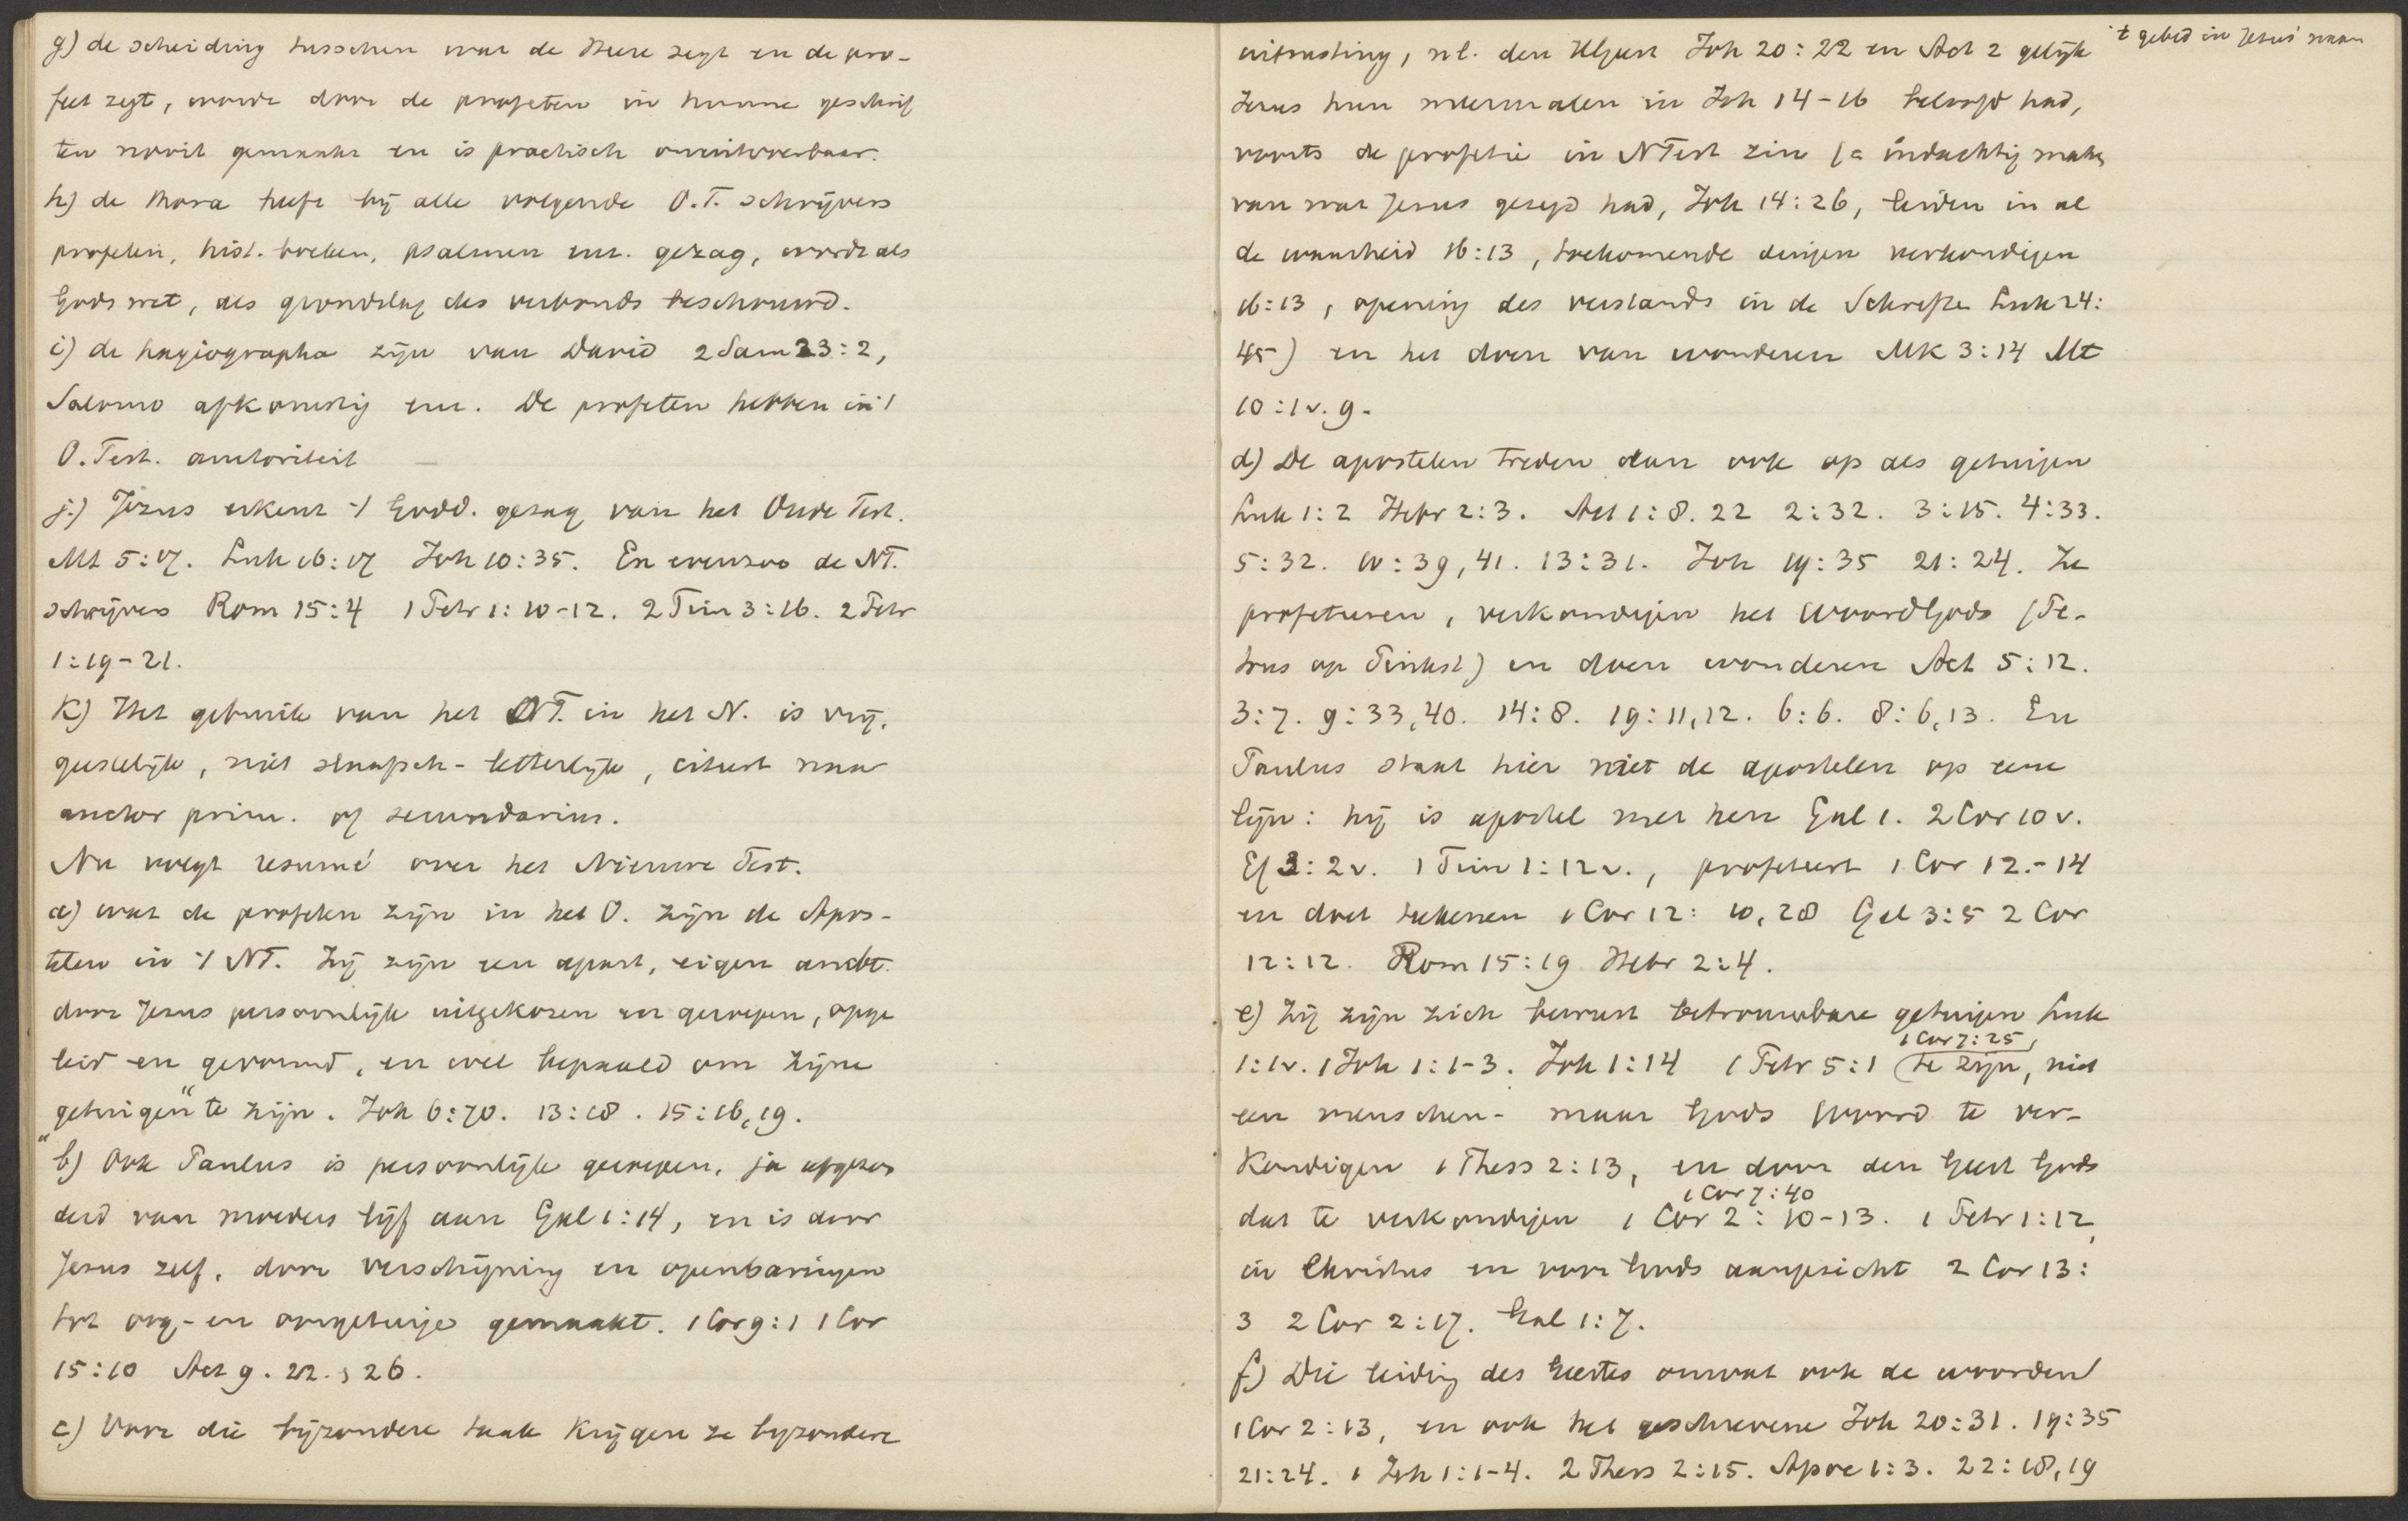 g) de scheiding tusschen wat de Heere zegt en de pro-
feet zegt, wordt door de profeten in hunne geschrif
ten nooit gemaakt en is practisch onuitvoerbaar.
h) de Thora heeft bij alle volgende O.T. schrijvers
profeten, hist. boeken, psalmen enz. gezag, wordt als
Gods wet, als grondslag des verbonds beschouwd.
i) de hagiographa zijn van David 2 Sam 23:2,
Salomo afkomstig enz. De profeten hebben in 't
O. Test. autoriteit —
j.) Jezus erkent 't Godd. gezag van het Oude Test.
Mt 5:17. Luk 16:17 Joh 10:35. En evenzoo de NT.
schrijvers Rom 15:4 1 Petr 1:10-12. 2 Tim 3:16. 2 Petr
1:19-21.
k) Het gebruik van het OT. in het N. is vrij,
geestelijk, niet slaafsch-letterlijk, citeert naar
auctor prim. of secundarius.
Nu volgt resumé over het Nieuwe Test.
a) wat de profeten zijn in het O. zijn de Apos-
telen in 't NT. Zij zijn een apart, eigen ambt.
door Jezus persoonlijk uitgekozen en geroepen, opge
leid en gevormd, en wel bepaald om zijne
"getuigen" te zijn. Joh 6:70. 13:18. 15:16,19.
b) Ook Paulus is persoonlijk geroepen, ja afgezon
derd van moeders lijf aan Gal 1:14, en is door
Jezus zelf, door verschijning en openbaringen
tot oog- en oorgetuige gemaakt. 1 Cor 9:1 1 Cor
15:10 Act 9. 22. , 26.
c) Voor die bijzondere taak krijgen ze byzondere
't gebed in Jezus' naam
uitrusting, nl. den HGeest Joh 20:22 en Act 2 gelijk
Jezus hun meermalen in Joh 14-16 beloofd had,
voorts de profetie in NTest zin (= indachtig maken
van wat Jezus gezegd had, Joh 14:26, leiden in al
de waarheid 16:13, toekomende dingen verkondigen
16:13, opening des verstands in de Schriften Luk 24:
45) en het doen van wonderen Mk 3:14 Mt
10:1v. 9.
d) De apostelen treden dan ook op als getuigen
Luk 1:2 Hebr 2:3. Act 1:8. 22 2:32. 3:15. 4:33.
5:32. 10:39,41. 13:31. Joh 19:35 21:24. Ze
profeteeren, verkondigen het Woord Gods (Pe-
trus op Pinkst) en doen wonderen Act 5:12.
3:7. 9:33,40. 14:8. 19:11,12. 6:6. 8:6,13. En
Paulus staat hier met de apostelen op eene
lijn: hij is apostel met hen Gal 1. 2 Cor 10 v.
Ef 3:2v. 1 Tim 1:12v., profeteert 1 Cor 12.-14
en doet teekenen 1 Cor 12: 10,28 Gal 3:5 2 Cor
12:12. Rom 15:19 Hebr 2:4.
e) Zij zijn zich bewust betrouwbare getuigen Luk
1 Cor 7:25,
1:1v. 1 Joh 1:1-3. Joh 1:14 1 Petr 5:1 te zijn, niet
een menschen- maar Gods Woord te ver-
kondigen 1 Thess 2:13, en door den Geest Gods
1 Cor 7:40
dat te verkondigen 1 Cor 2:10-13. 1 Petr 1:12,
in Christus en voor Gods aangezicht 2 Cor 13:
3 2 Cor 2:17. Gal 1:7.
f) Die leiding des Geestes omvat ook de woorden
1 Cor 2:13, en ook het geschrevene Joh 20:31. 19:35
21:24. 1 Joh 1:1-4. 2 Thess 2:15. Apoc 1:3. 22:18,19